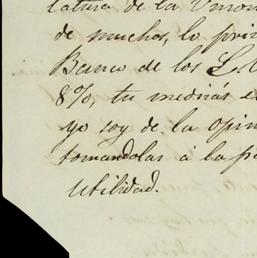 latura de la Union
de muchos, lo pri
Banco de los E.
8%, tu medirás e
yo soy de la opin
tomandolas á la pa
utilidad.